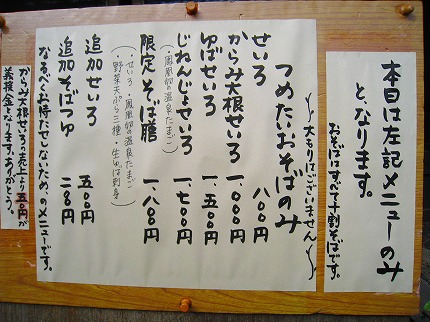 本日は左記メニューのみ
と、なります。
おそばはすべて十割そばです。
つめたいおそばのみ
（大もりはございません）
せいろ 八〇〇円
からみ大根せいろ 一、〇〇〇円
ゆばせいろ 一、五〇〇円
じねんじょせいろ 一、七〇〇円
（鳳凰卵の温泉たまご）
限定 そば膳 一、八〇〇円
（・せいろ・鳳凰卵の温泉たまご
・野菜天ぷら三種・生ゆば刺身）
追加せいろ 五〇〇円
追加そばつゆ 二〇〇円
なるべくお待たせしないため、のメニューです。
からみ大根せいろの売上より五〇円が
義援金となります。ありがとう。